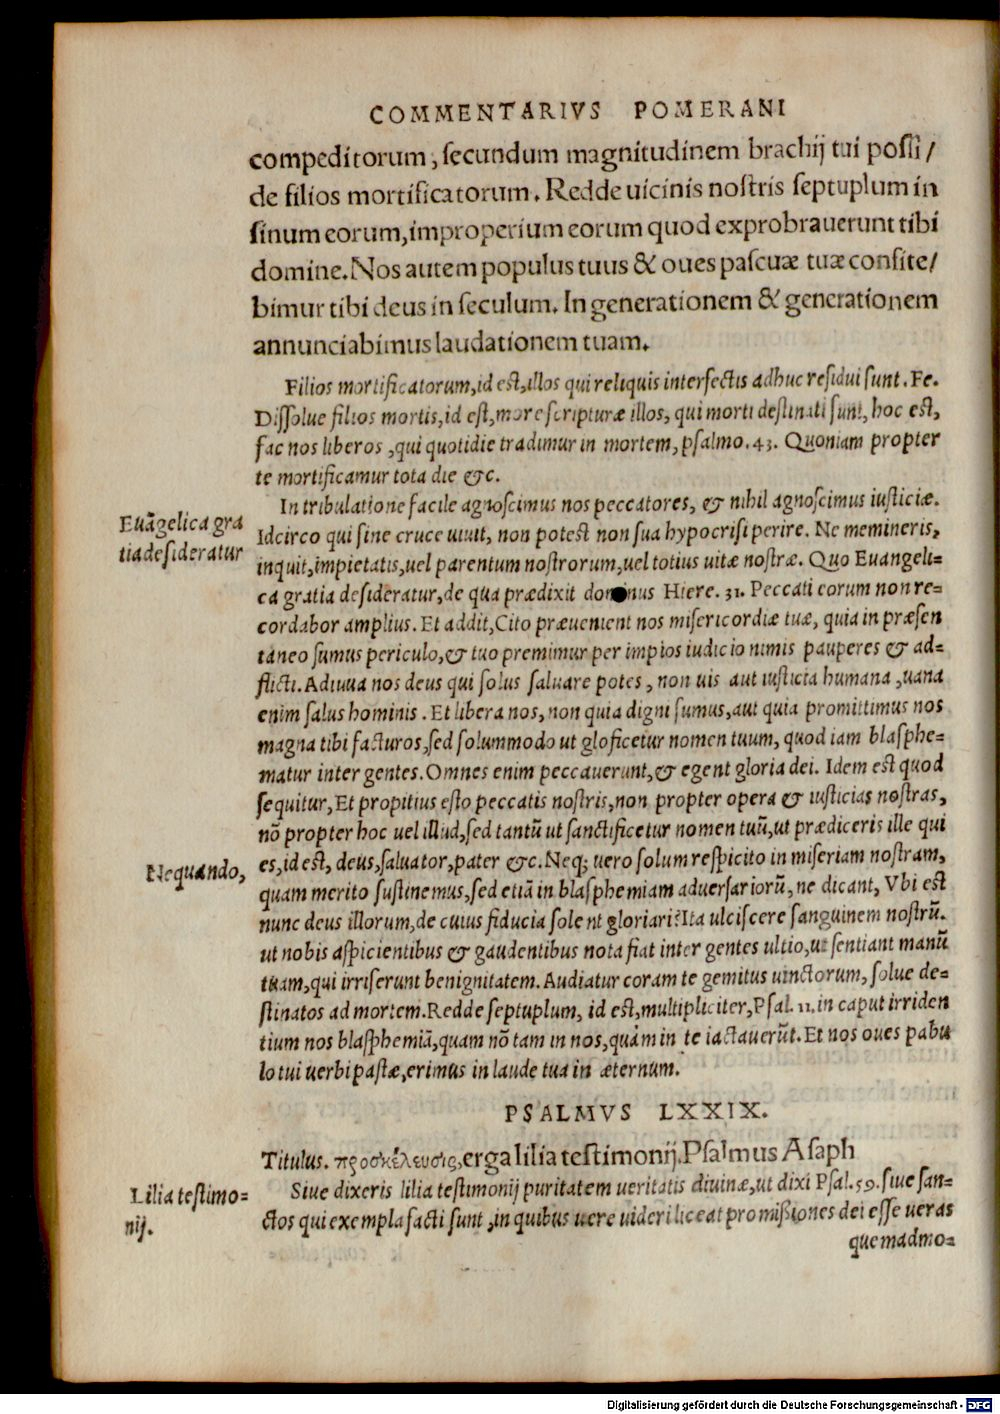 COMMENTARIVS POMERANI
compeditorum, secundum magnitudinem brachij tui possi/
de filios mortificatorum. Redde uicinis nostris septuplum in
sinum eorum, improperium eorum quod exprobrauerunt tibi
domine. Nos autem populus tuus & oues pascuæ tuæ confite/
bimur tibi deus in seculum. In generationem & generationem
annunciabimus laudationem tuam.
Filios mortificatorum, id est, illos qui reliquis interfectis adhuc residui sunt. Fe.
Dissolue filios mortis, id est, more scripturæ illos, qui morti destinati sunt, hoc est,
fac nos liberos, qui quotidie tradimur in mortem, psalmo. 43. Quoniam propter
te mortificamur tota die &c.
In tribulatione facile agnoscimus nos peccatores, & nihil agnoscimus iusticiæ.
Euãgelica gra
tia desideratur
Idcirco qui sine cruce uiuit, non potest non sua hypocrisi perire. Ne memineris,
inquit, impietatis, uel parentum nostrorum, uel totius uitæ nostræ. Quo Euangeli=
ca gratia desideratur, de qua prædixit dominus Hiere. 31. Peccati eorum non re=
cordabor amplius. Et addit, Cito præuenient nos misericordiæ tuæ, quia in præsen
taneo sumus periculo, & tuo premimur per impios iudicio nimis pauperes & ad=
flicti. Adiuua nos deus qui solus saluare potes, non uis aut iusticia humana, uana
enim salus hominis. Et libera nos, non quia digni sumus, aut quia promittimus nos
magna tibi facturos, sed solummodo ut gloficetur nomen tuum, quod iam blasphe=
matur inter gentes. Omnes enim peccauerunt, & egent gloria dei. Idem est quod
sequitur, Et propitius esto peccatis nostris, non propter opera & iusticias nostras,
nõ propter hoc uel illud, sed tantũ ut sanctificetur nomen tuũ, ut prædiceris ille qui
Nequando,
es, id est, deus, saluator, pater &c. Neq; uero solum respicito in miseriam nostram,
quam merito sustinemus, sed etiã in blasphemiam aduersariorũ, ne dicant, Vbi est
nunc deus illorum, de cuius fiducia solent gloriari? Ita ulciscere sanguinem nostrũ.
ut nobis aspicientibus & gaudentibus nota fiat inter gentes ultio, ut sentiant manũ
tuam, qui irriserunt benignitatem. Audiatur coram te gemitus uinctorum, solue de=
stinatos ad mortem. Redde septuplum, id est, multipliciter, Psal. 11. in caput irriden
tium nos blasphemiã, quam nõ tam in nos, quàm in te iactauerũt. Et nos oues pabu
lo tui uerbi pastæ, erimus in laude tua in æternum.
PSALMVS LXXIX.
Titulus. προσκέλευσις, erga lilia testimonij. Psalmus Asaph
Lilia testimo=
nij.
Siue dixeris lilia testimonij puritatem ueritatis diuinæ, ut dixi Psal. 59. siue san=
ctos qui exempla facti sunt, in quibus uere uideri liceat promissiones dei esse ueras
quemadmo=
Digitalisierung gefördert durch die Deutsche Forschungsgemeinschaft - DFG